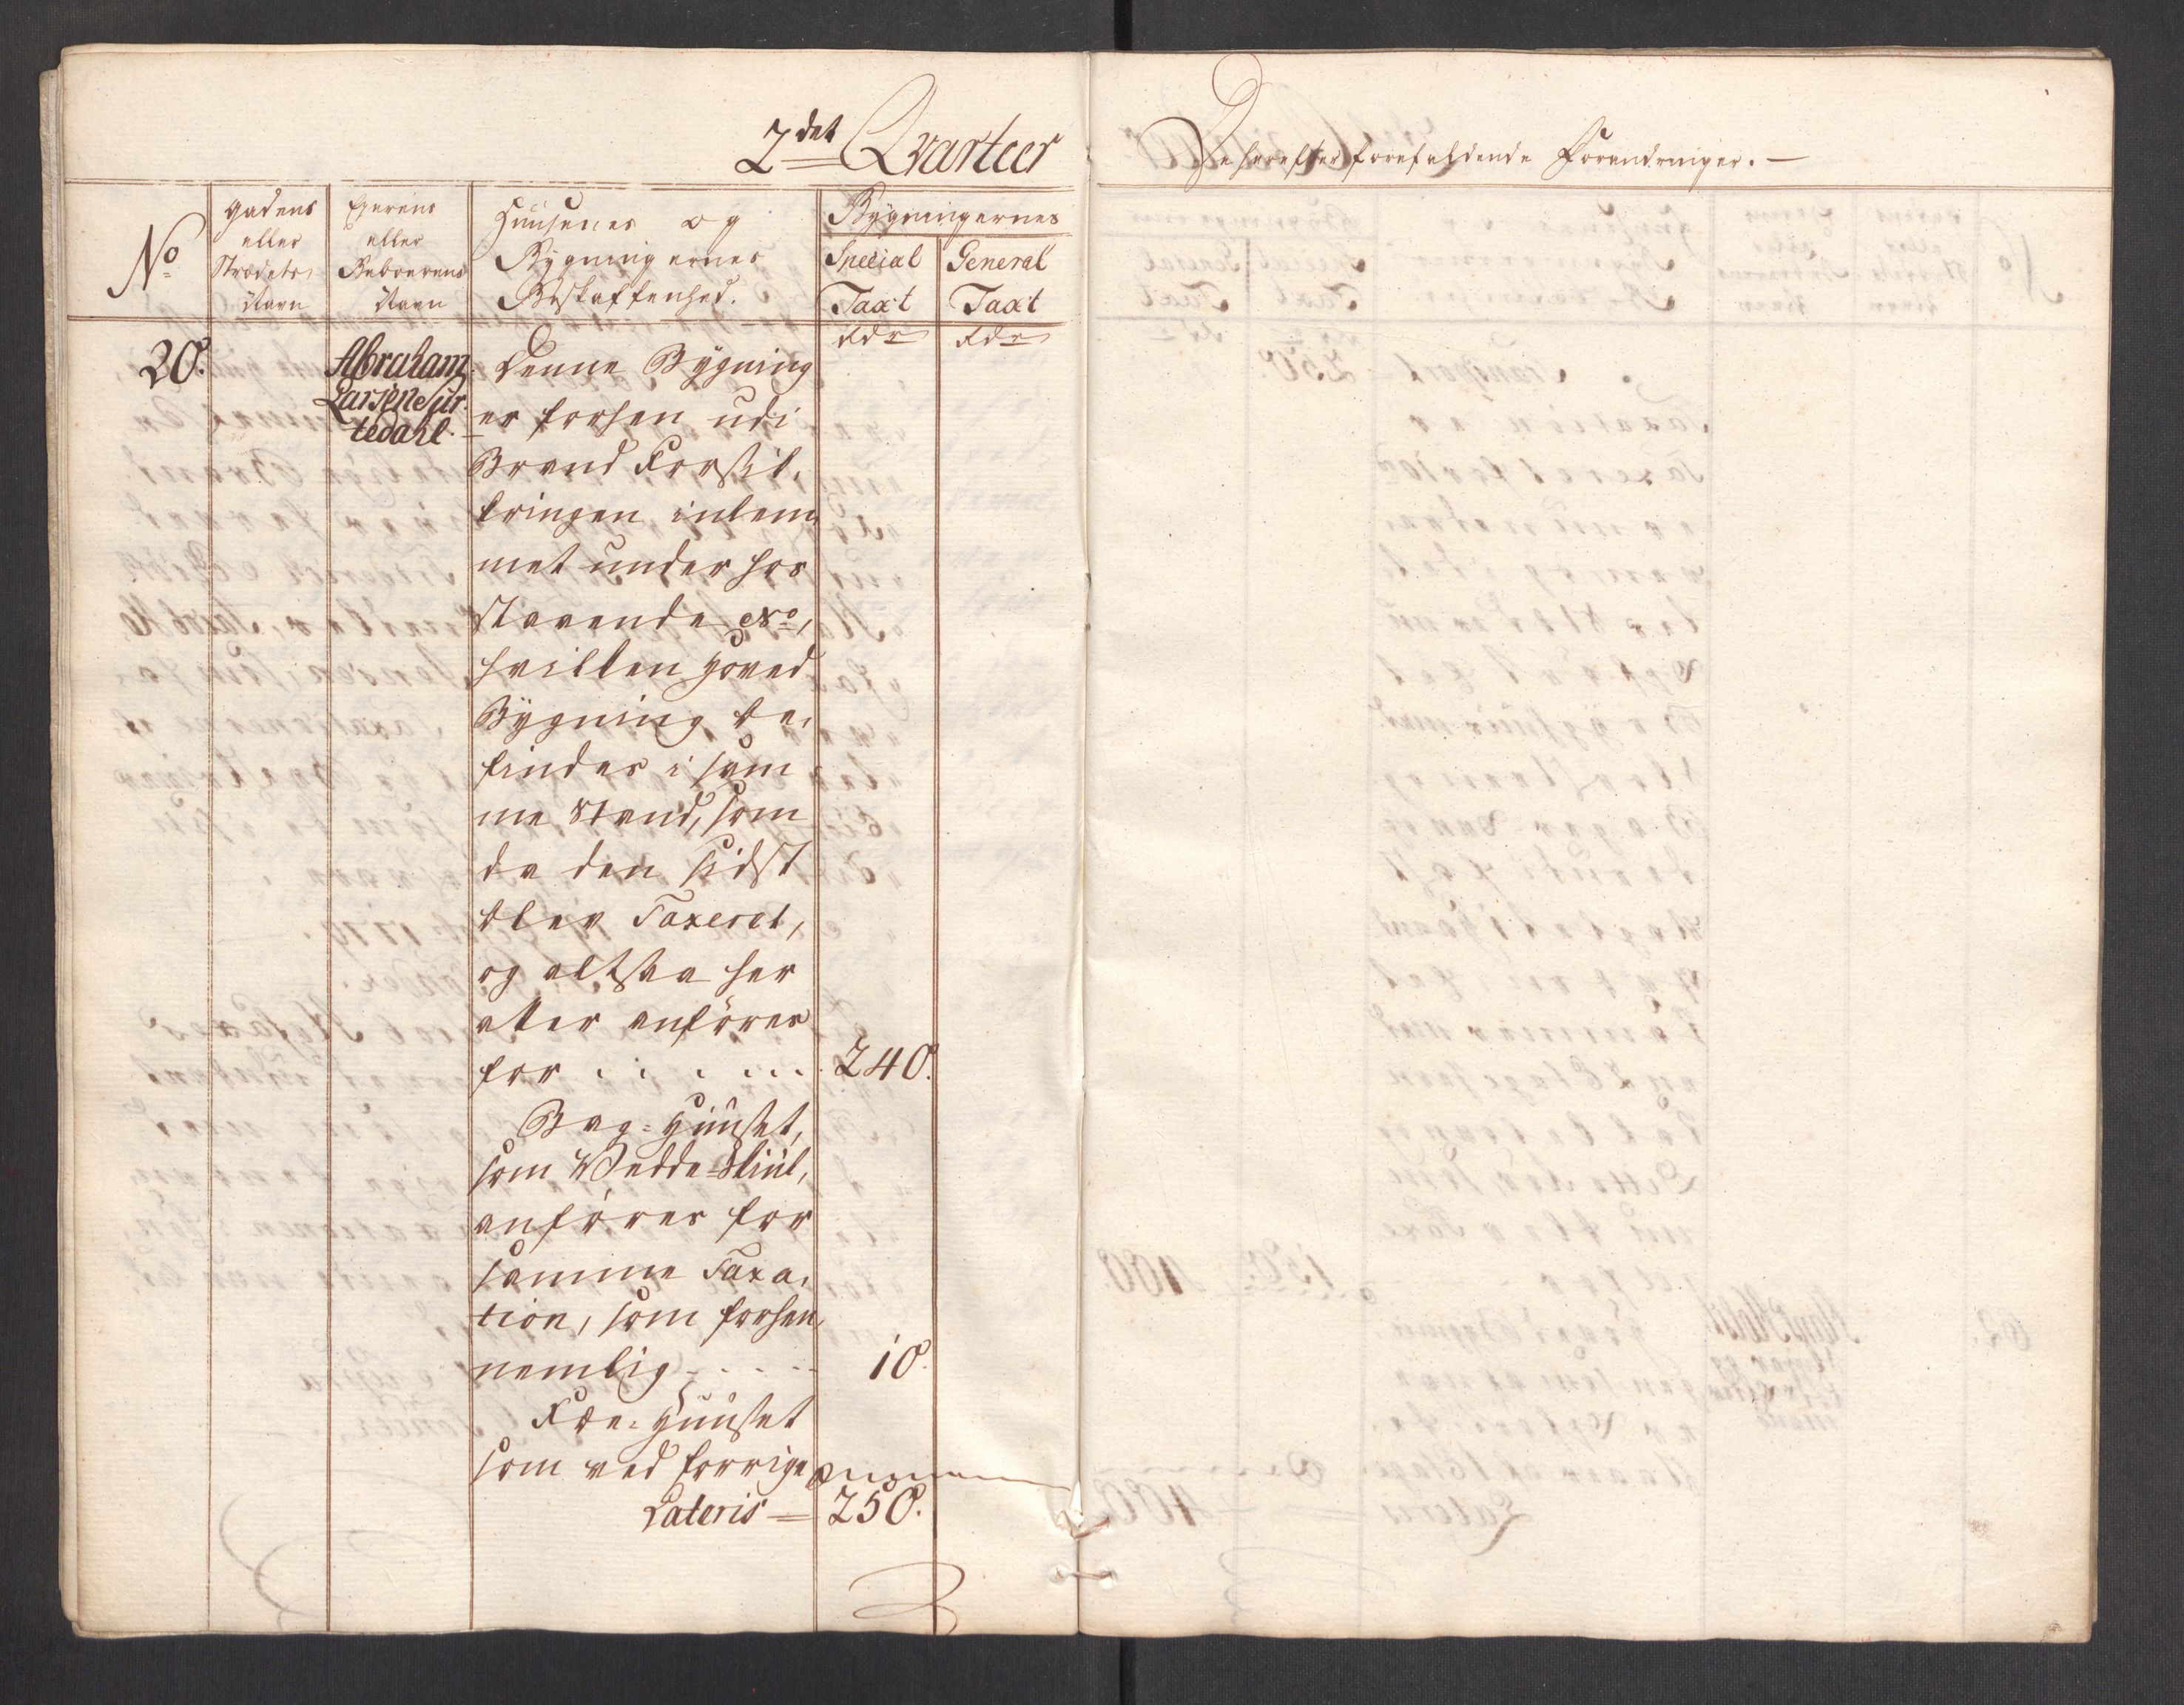 2det Qvarteer
De herefter forefaldende Forandringer. —
No
Gadens
eller
Strædets
Navn
Ejerens
eller
Beboerens
Navn
Huusenes og
Bygningernes
Beskaffenhed.
Bygningernes
Special
Taxt
General
Taxt
Rdr
Rdr
20.
Abraham
Larsen
tedahl.
Denne Bygning
er forhen udi
Brand Forsik,
kringen indlem
met under hos
staaende No,
hvilken Hoved
Bygning be,
findes i sam
me Stand, som
da den sidst
blev Taxeret,
og altsaa her
atter anföres
for . . . . . . 240.
Bag-Huuset,
som Vedde-Skiul,
anföres for
samme Taxa,
tion, som forhen,
nemlig - - - - 10.
Fæe-Huuset
som ved forrige
Lateris = 250.